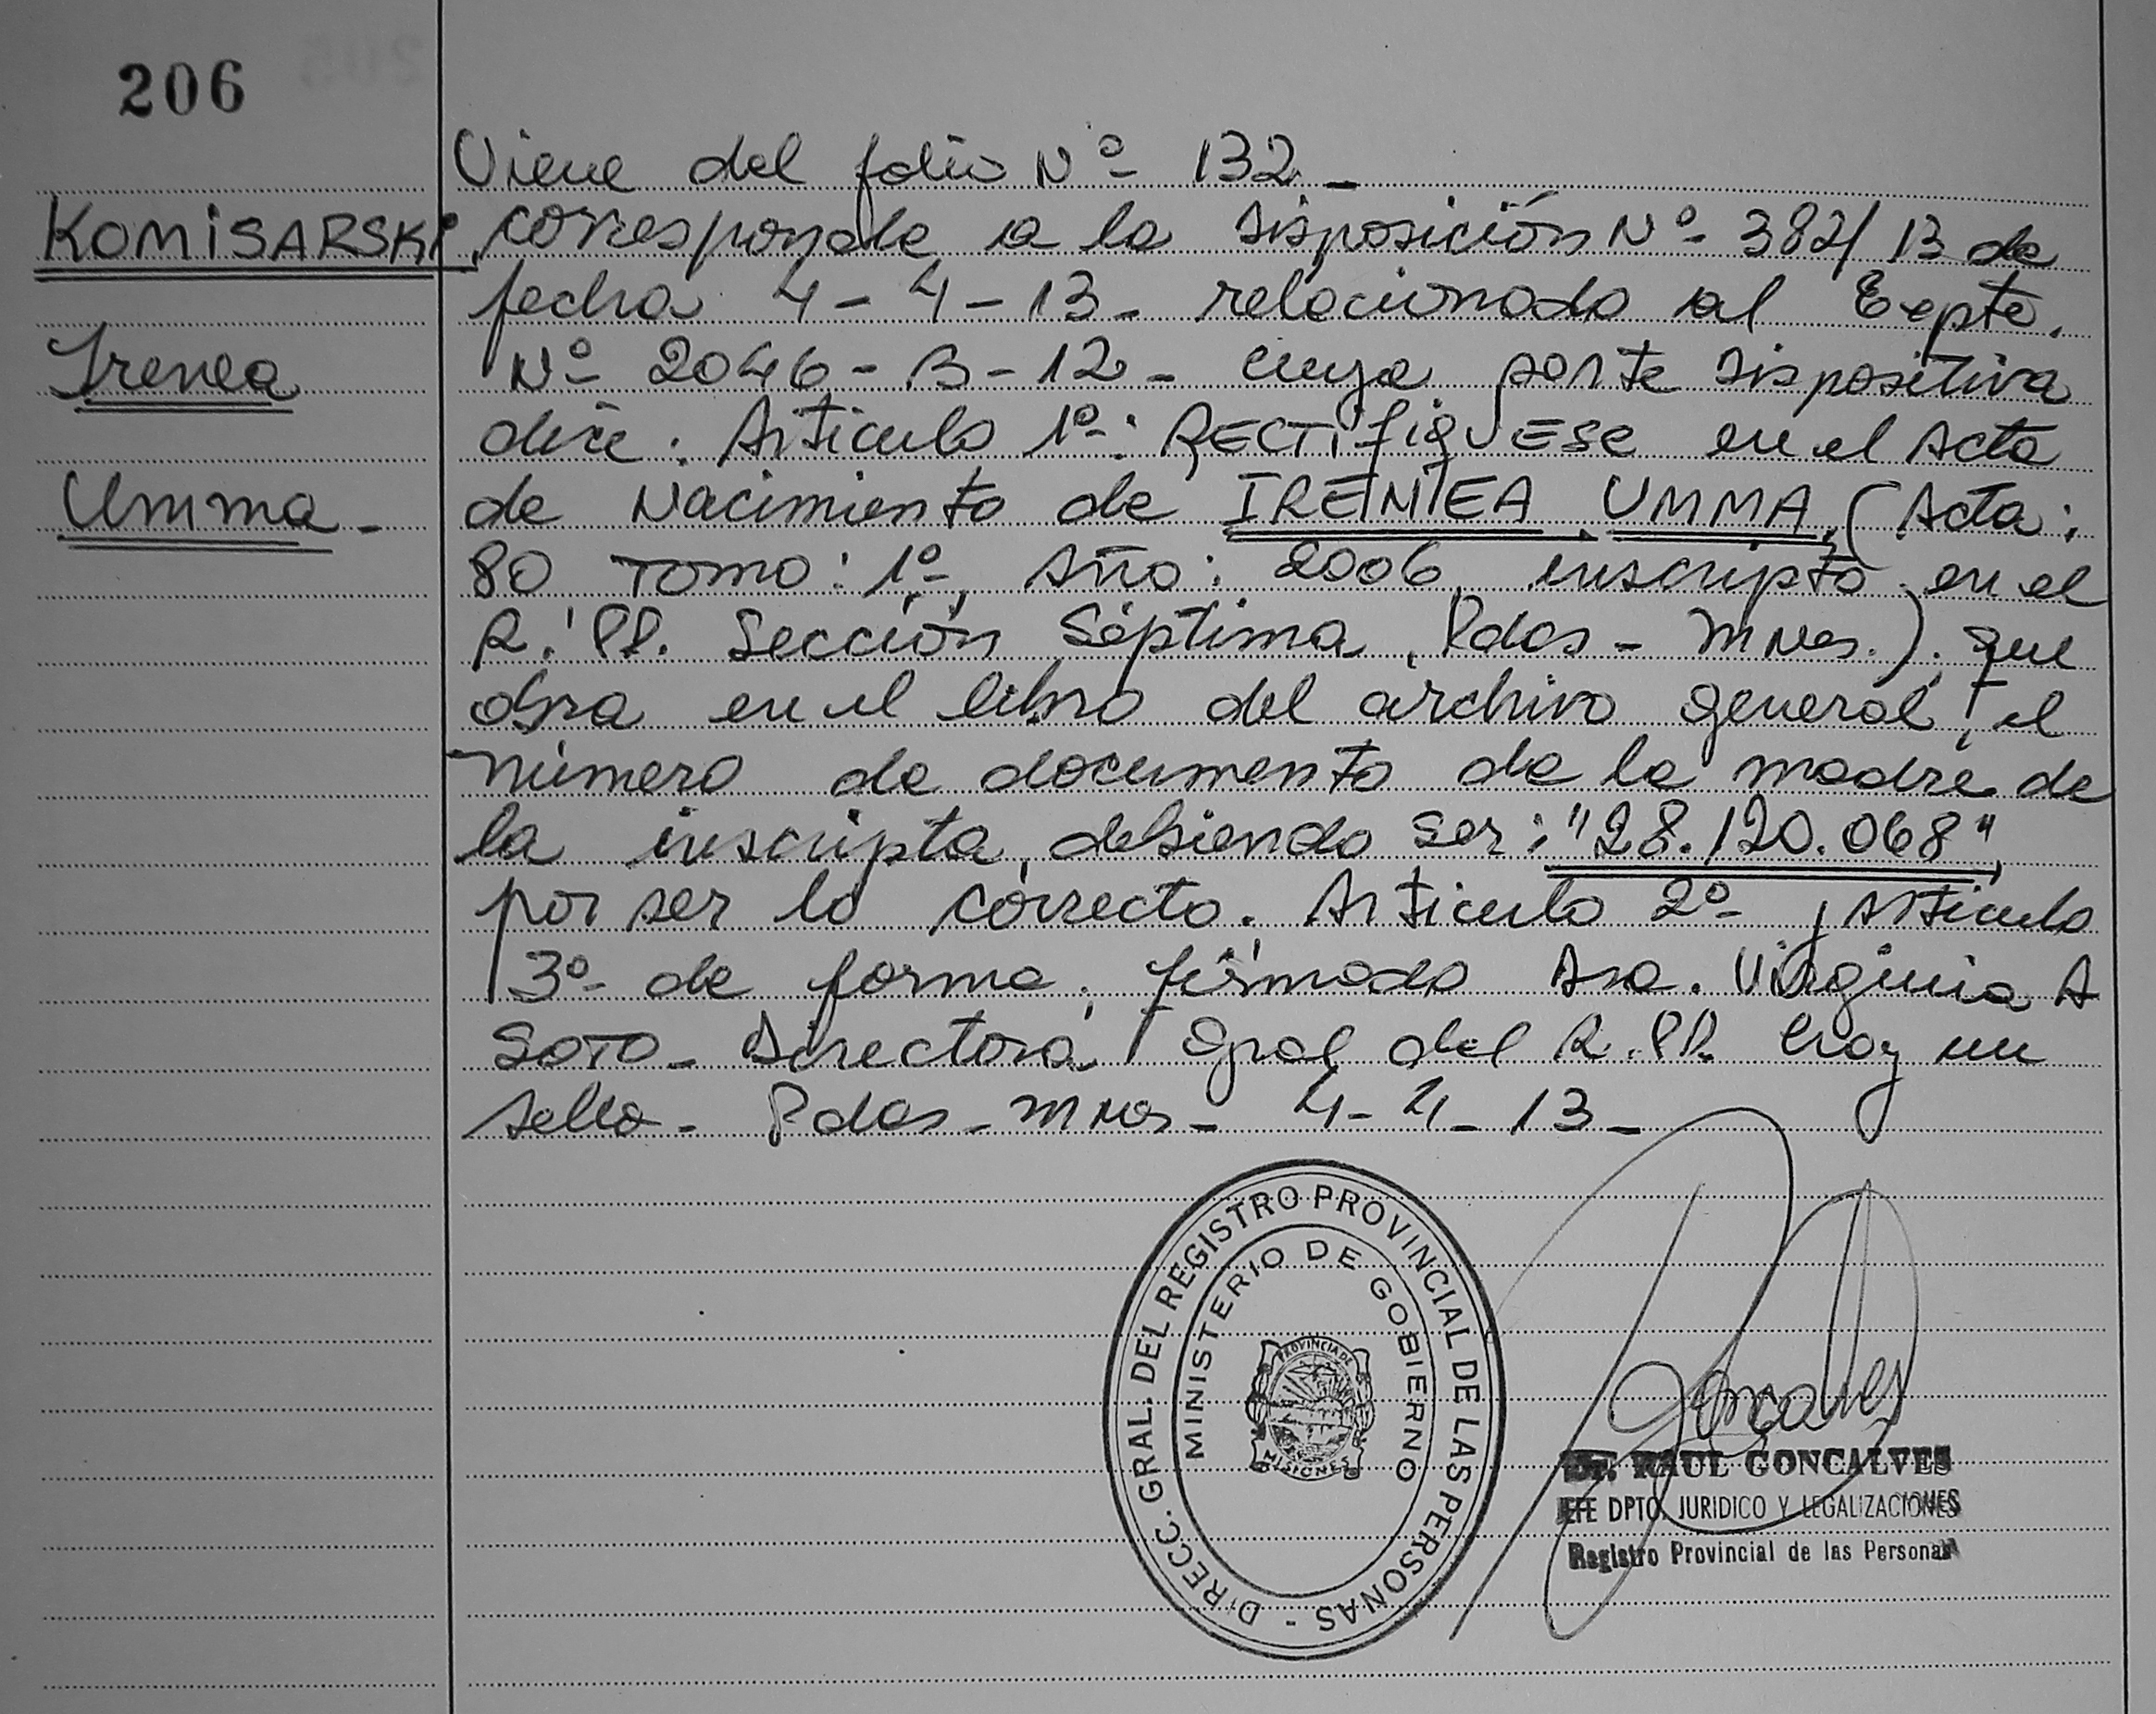 206
Viene del folio Nº 132 -
KOMISARSKI, corresponde a la disposición Nº 382/13 de
fecha 4-4-13- relacionado al Expte.
Irenea
Nº 2046-B-12- cuya parte dispositiva
dice: Artículo 1º: RECTIfiqUESE en el Acta
Umma-
de Nacimiento de IRENEA UMMA, (Acta:
80 Tomo: 1º, Año: 2006, inscripta en el
R. PP. Sección Séptima, Pdas - Mnes.). que
obra en el libro del archivo general, el
número de documento de la madre de
la inscripta, debiendo ser: "28.120.068",
por ser lo correcto. Artículo 2º y Artículo
3º de forma. firmado Dra. Virginia A
SOTO- Directora Gral del R.PP. Hay un
sello- Pdas-Mnes- 4-4-13-
DIRECC. GRAL. DEL REGISTRO PROVINCIAL DE LAS PERSONAS -
MINISTERIO DE GOBIERNO
PROVINCIA DE
MISIONES
Goncalves
Dr. RAUL GONCALVES
JEFE DPTO. JURIDICO Y LEGALIZACIONES
Registro Provincial de las Personas